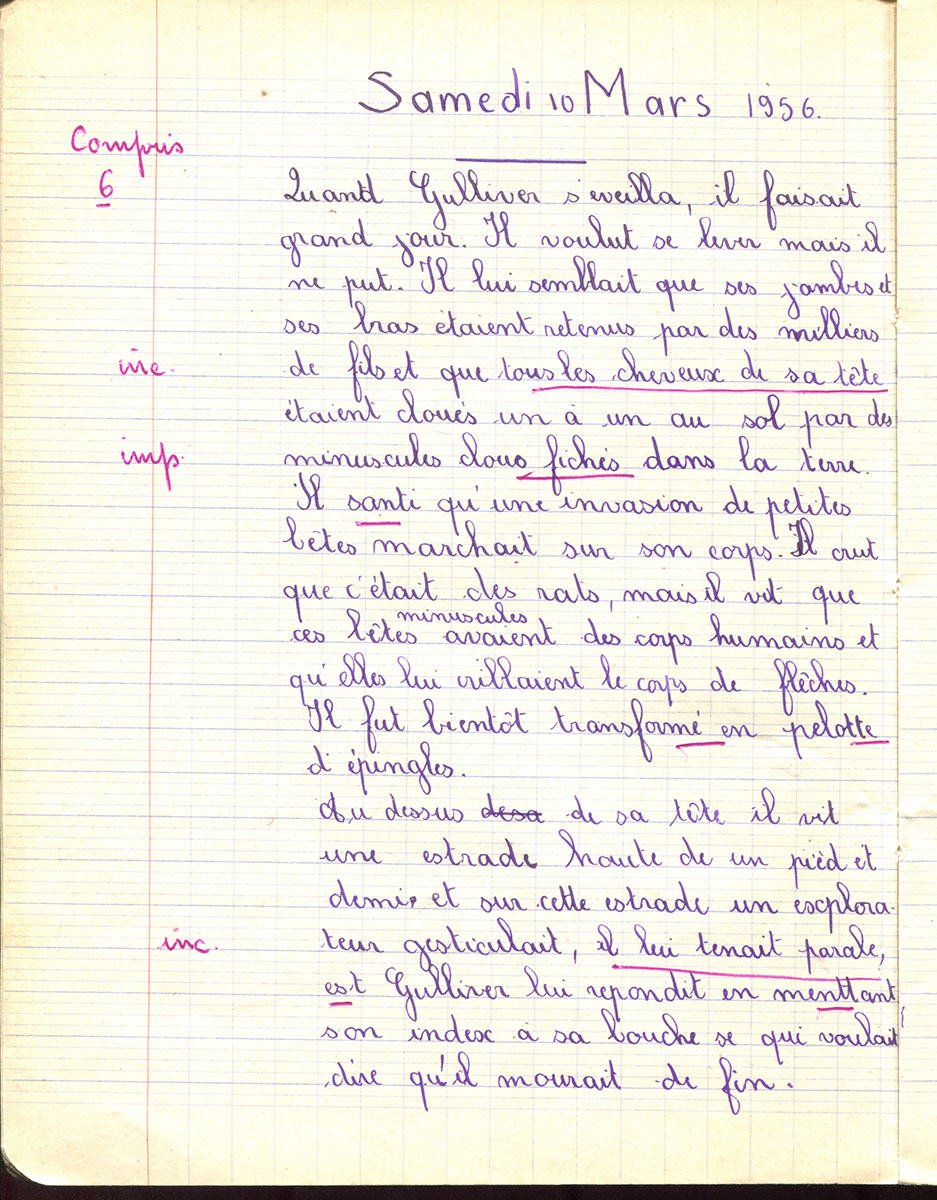 Samedi 10 Mars 1956.
Compris
6
Quand Gulliver s'eveilla, il faisait
grand jour. Il voulut se lever mais il
ne put. Il lui semblait que ses jambes et
ses bras étaient retenus par des milliers
inc. de fils et que tous les cheveux de sa tête
étaient cloués un à un au sol par des
imp. minuscules clous fichés dans la terre.
Il santi qu'une invasion de petites
bêtes marchait sur son corps. Il crut
que c'était des rats, mais il vit que
minuscules
ces bêtes avaient des corps humains et
qu'elles lui crillaient le corps de flêches.
Il fut bientôt transformé en pelotte
d'épingles.
Au dessus desa de sa tête il vit
une estrade haute de un pièd et
demi, et sur cette estrade un esxplora-
inc. teur gesticulait, il lui tenait parale,
est Gulliver lui repondit en menttant
son index à sa bouche se qui voulait
dire qu'il mourait de fin.